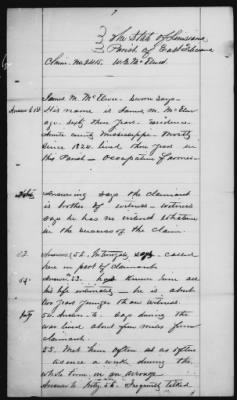 The State of Louisiana
Parish of East Feliciana
Claim No 2415. W. E. McElwee
James M. McElwee. Sworn says.
Answer to 1st His name is James M. McElwee
age - sixty three years - residence
Amite county Mississippi - mostly
since 1824. lived three years in
this Parish - Occupation
answering says the claimant
is brother of witness - witness
says he has no interest whatever
in the success of the claim.
52. Answer 52. called
here in part of claimant.
Answer 53. has known him all
his life intimately - he is about
two years younger than witness.
54. Answer to says during the
war lived about five miles from
claimant.
55. Met him often as often
as once a week during the
whole time, on an average
Answer to Frequently talked